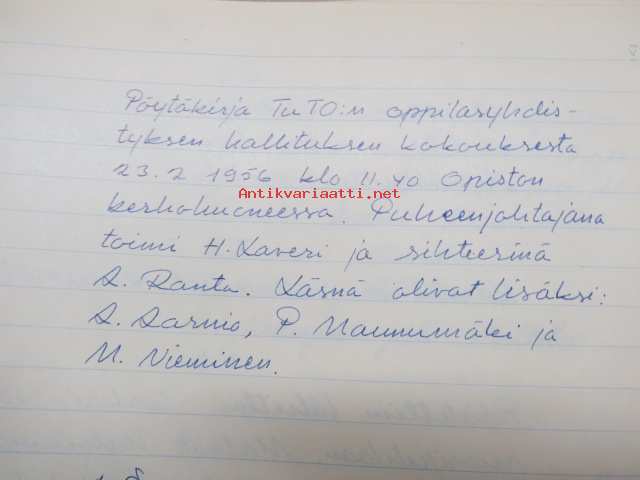 Pöytäkirja TuTO:n oppilasyhdis-
tyksen hallituksen kokouksesta
23.2 1956 klo 11.40 Opiston
Antikvariaatti.net
kerhohuoneessa. Puheenjohtajana
toimi H. Laveri ja sihteerinä
A. Ranta. Läsnä olivat lisäksi:
A. Aarnio, P. Maunumäki ja
M. Nieminen.